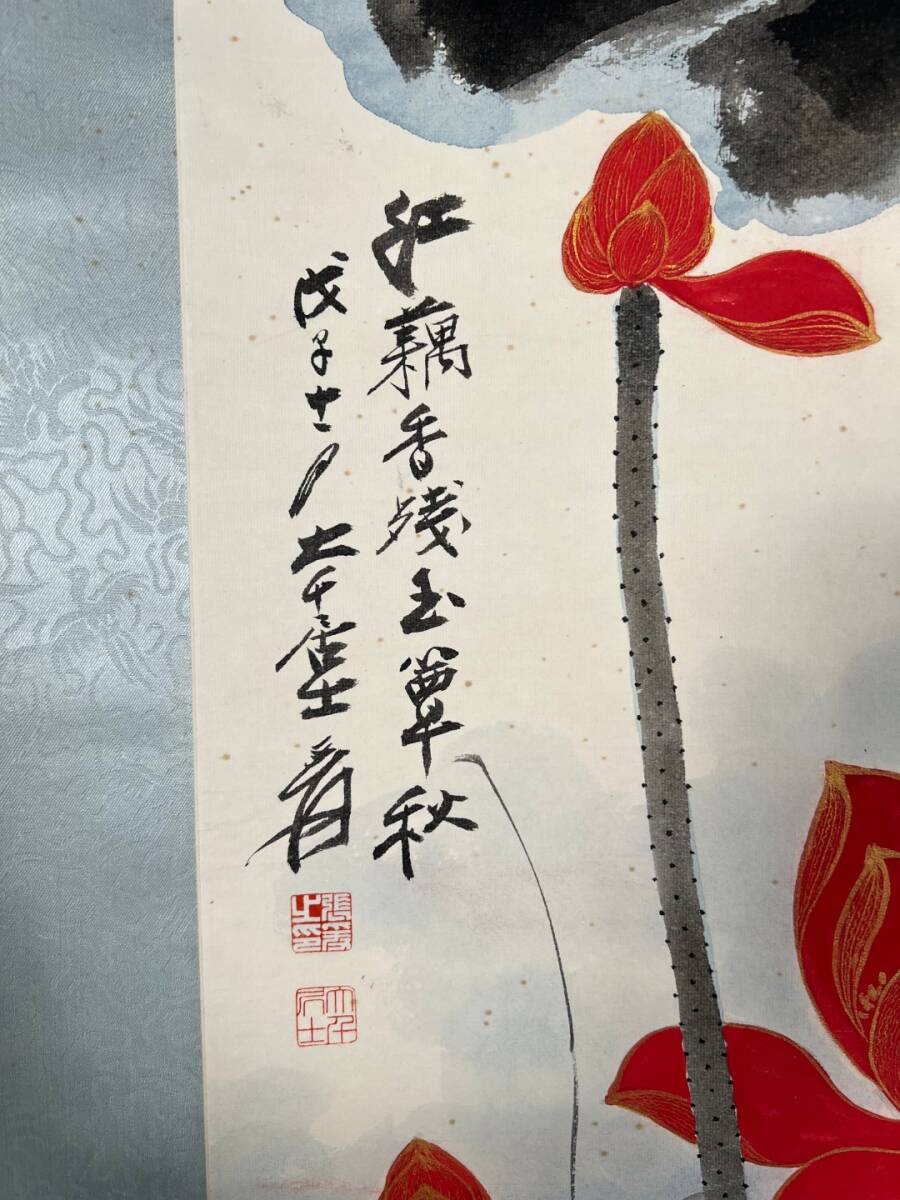 红藕香残玉簟秋
戊子十一月大千居士爰
張爰之印
大千居士